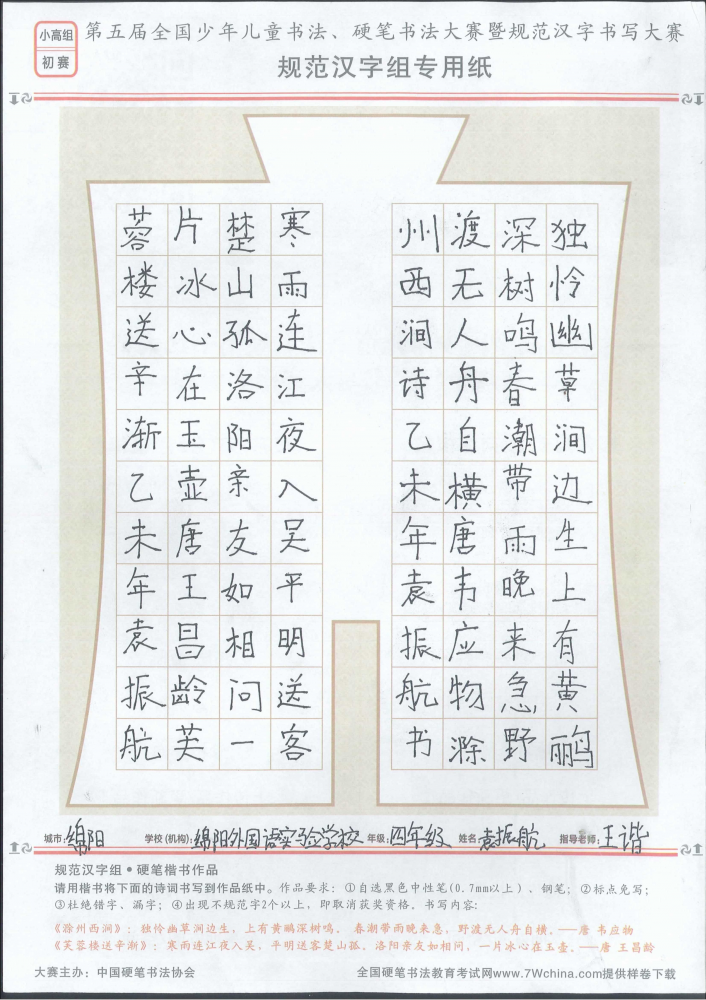 小高组
初赛
第五届全国少年儿童书法、硬笔书法大赛暨规范汉字书写大赛
规范汉字组专用纸
独怜幽草涧边生上有黄鹂
深树鸣春潮带雨晚来急野
渡无人舟自横唐韦应物滁
州西涧诗乙未年袁振航书
寒雨连江夜入吴平明送客
楚山孤洛阳亲友如相问一
片冰心在玉壶唐王昌龄芙
蓉楼送辛渐乙未年袁振航
城市:绵阳 学校(机构):绵阳外国语实验学校 年级:四年级 姓名:袁振航 指导老师:王谐
规范汉字组•硬笔楷书作品
请用楷书将下面的诗词书写到作品纸中。作品要求：①自选黑色中性笔(0.7mm以上)、钢笔；②标点免写；
③杜绝错字、漏字；④出现不规范字2个以上，即取消获奖资格。书写内容：
《滁州西涧》：独怜幽草涧边生，上有黄鹂深树鸣。 春潮带雨晚来急，野渡无人舟自横。——唐 韦应物
《芙蓉楼送辛渐》：寒雨连江夜入吴，平明送客楚山孤。洛阳亲友如相问，一片冰心在玉壶。——唐 王昌龄
大赛主办：中国硬笔书法协会 全国硬笔书法教育考试网www.7Wchina.com提供样卷下载